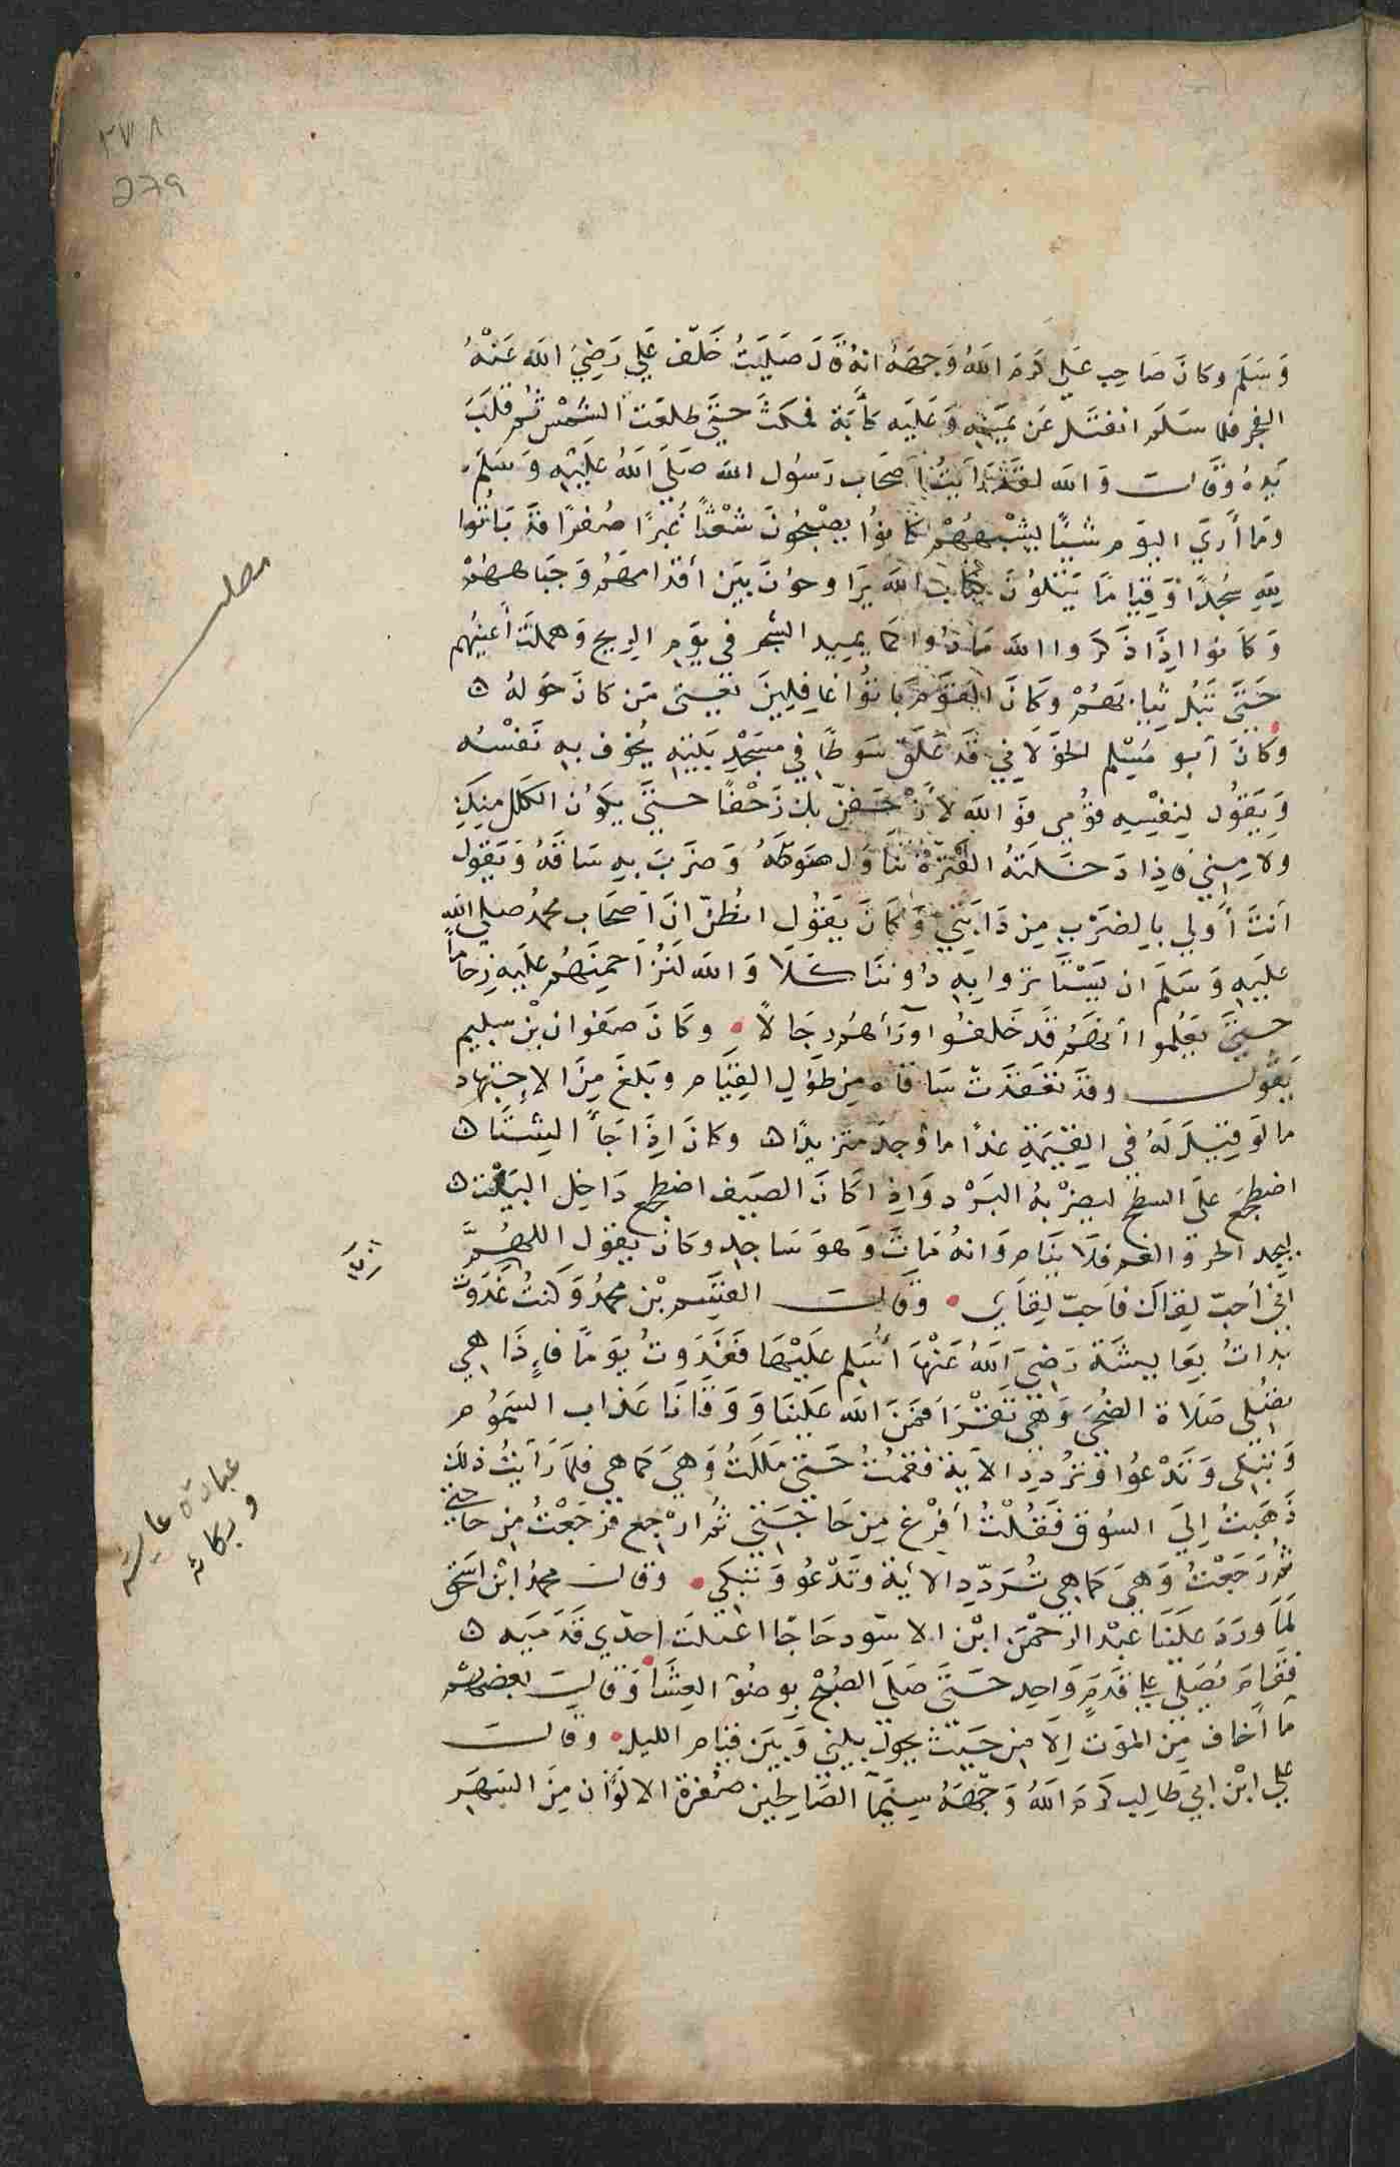 ٢٧٨
279
وَسَلم وكانَ صَاحِب عَلي كَرم اللهُ وَجهَهُ انهُ قَالَ صَليَتُ خَلف عَلِي رَضِيَ الله عَنْهُ
الفجر فلما سَلم انفتَل عَن يَميَنِهِ وَعَليَه كآبَة فمكثَ حَتَّى طلعَت الشَمْس ثُم قلَبَ
يَدهُ وَقالــــ وَالله لقَد رَايتُ اصحَاب رَسُول الله صَلَى اللهُ عَليَهِ وَسَلَم
وَما أرَي اليوَم شيئًا يشْبهُهُمْ كانوُا يصْبحُونَ شعْثًا غُبرًا صُفرًا قدَ بَاتوُا
لله سُجدًا وَقيِامًا يَتلوُنَ كِتاب الله يَراوحوُنَ بيَن أقدَامهَم وَجبَاههُمْ
وَكاَنوا اِذَا ذَكرَوا الله مَادُوا كما يمِيد الشجر في يوَم الريح وَهملت أعينهُم
حَتَّى تَبل ثيابهُمْ وَكانَ القوَم بَاتوُا غَافِلِينَ يَعني مَن كانَ حَولهُ ه
وكانَ أبو مُسْلم الخوَلاَني قَد عَلق سَوطًا في مسَجْدِ بَيتِهِ يُخوف بِهِ نَفسْهُ
وَيَقوُل لنِفسِهِ قوُمي فوَ الله لأزْحَفنّ بك زَحْفًا حَتىَّ يكوُن الكَلل مِنكِ
ولا مِني فاذِا دَخَلتهُ الفتَرةُ تنَاوَل سَوطَهُ وَضرَبَ بِهِ سَاقَهُ وَيَقوُل
اَنتَ أوَلي بِالضرَبِ مِن دَابَتي وَكانَ يَقوُل ايظُنّ اَصحَاب محمدُ صلى الله
عليَهِ وَسَلمَ ان يَسْتاثروا بِهِ دُوننَا كلا وَالله لنَزُاحمِنَهُم عليَهِ زِحامًا
حتىَّ يَعْلموا أنهَم قَد خَلفوُا وَرَأهُم رجَالاً • وَكانَ صفوان بْن سليم
يَقوُل وقدَ تعقدَتْ سَاقاه مِن طوَل القِيَام وبَلغَ مِنَ الاجتِهاد
ما لوَ قِيلَ لهُ في القيَمة غدًا ما وُجدَ متزيدًا ه وكانَ اِذَا جَأ الشتَاه
اضطجعَ عَلى السطح ليضِرْبهُ البَرْد وَاِذا كانَ الصَيَف اضطجع دَاخِل البيَت ه
ليجد الحر والغم فلاَ يَنَام وَانهُ مَاتَ وَهوَ سَاجِد وكانَ يقوُل اللهُمَّ
اني أحبّ لقِاكَ فاَحبّ لقِاَي • وَقالــــ القيَسم بْن محمدُ وَكنتُ اِذَا غَدَوت
بَداتُ بعَايشَة رَضِيَ اللهُ عَنْهَا أسَلم عليَهْا فغَدَوتُ يوَمًا فاِذَا هِي
تصَلي صَلاة الضُحىَ وَهيَ تقَرَا فمَنَ الله عَليَنا وَوَقانا عَذاب السمَوُم
وَتبكي وَتَدْعوُا وَترُدد الآية فقمُتُ حَتىَّ مَللتُ وَهيَ كماهي فلمَا رَأيتُ ذلكَ
ذَهَبتُ اِليَ السوُق فقَلُتُ أفرُغ مِن حَاجَتي ثم ارْجع ففرَغْتُ مِن حَاجتي
ثم رَجَعْتُ وَهيَ كما هي تُرَددِ الأيَة وَتَدْعُو وَتبكي • وقالـــ محمدُ ابْن اسَحق
لمَا ورَدَ عَليَنا عَبْد الرحَمْن ابْن الاسَود حَاجًا اعتلت اِحدَي قدَميَه ه
فقَامَ يُصَلي على قدَمٍ وَاحِد حتىَّ صَلىَ الصُبْح بوِضوُ العِشَا • وَقالــ بَعضهُم
مَا أخاف مِن الموَت اِلاَ مِن حَيث يحوُل بيَني وَبيَن قيِام الليل • وَقالــــ
علي ابْن أبي طالِب كَرم اللهُ وَجهَهُ سِيمَا الصَالحِين صُفرة الالوَان مِنَ السَهر
مطلب
اِذَا
عبادة عايشة
وبكائه